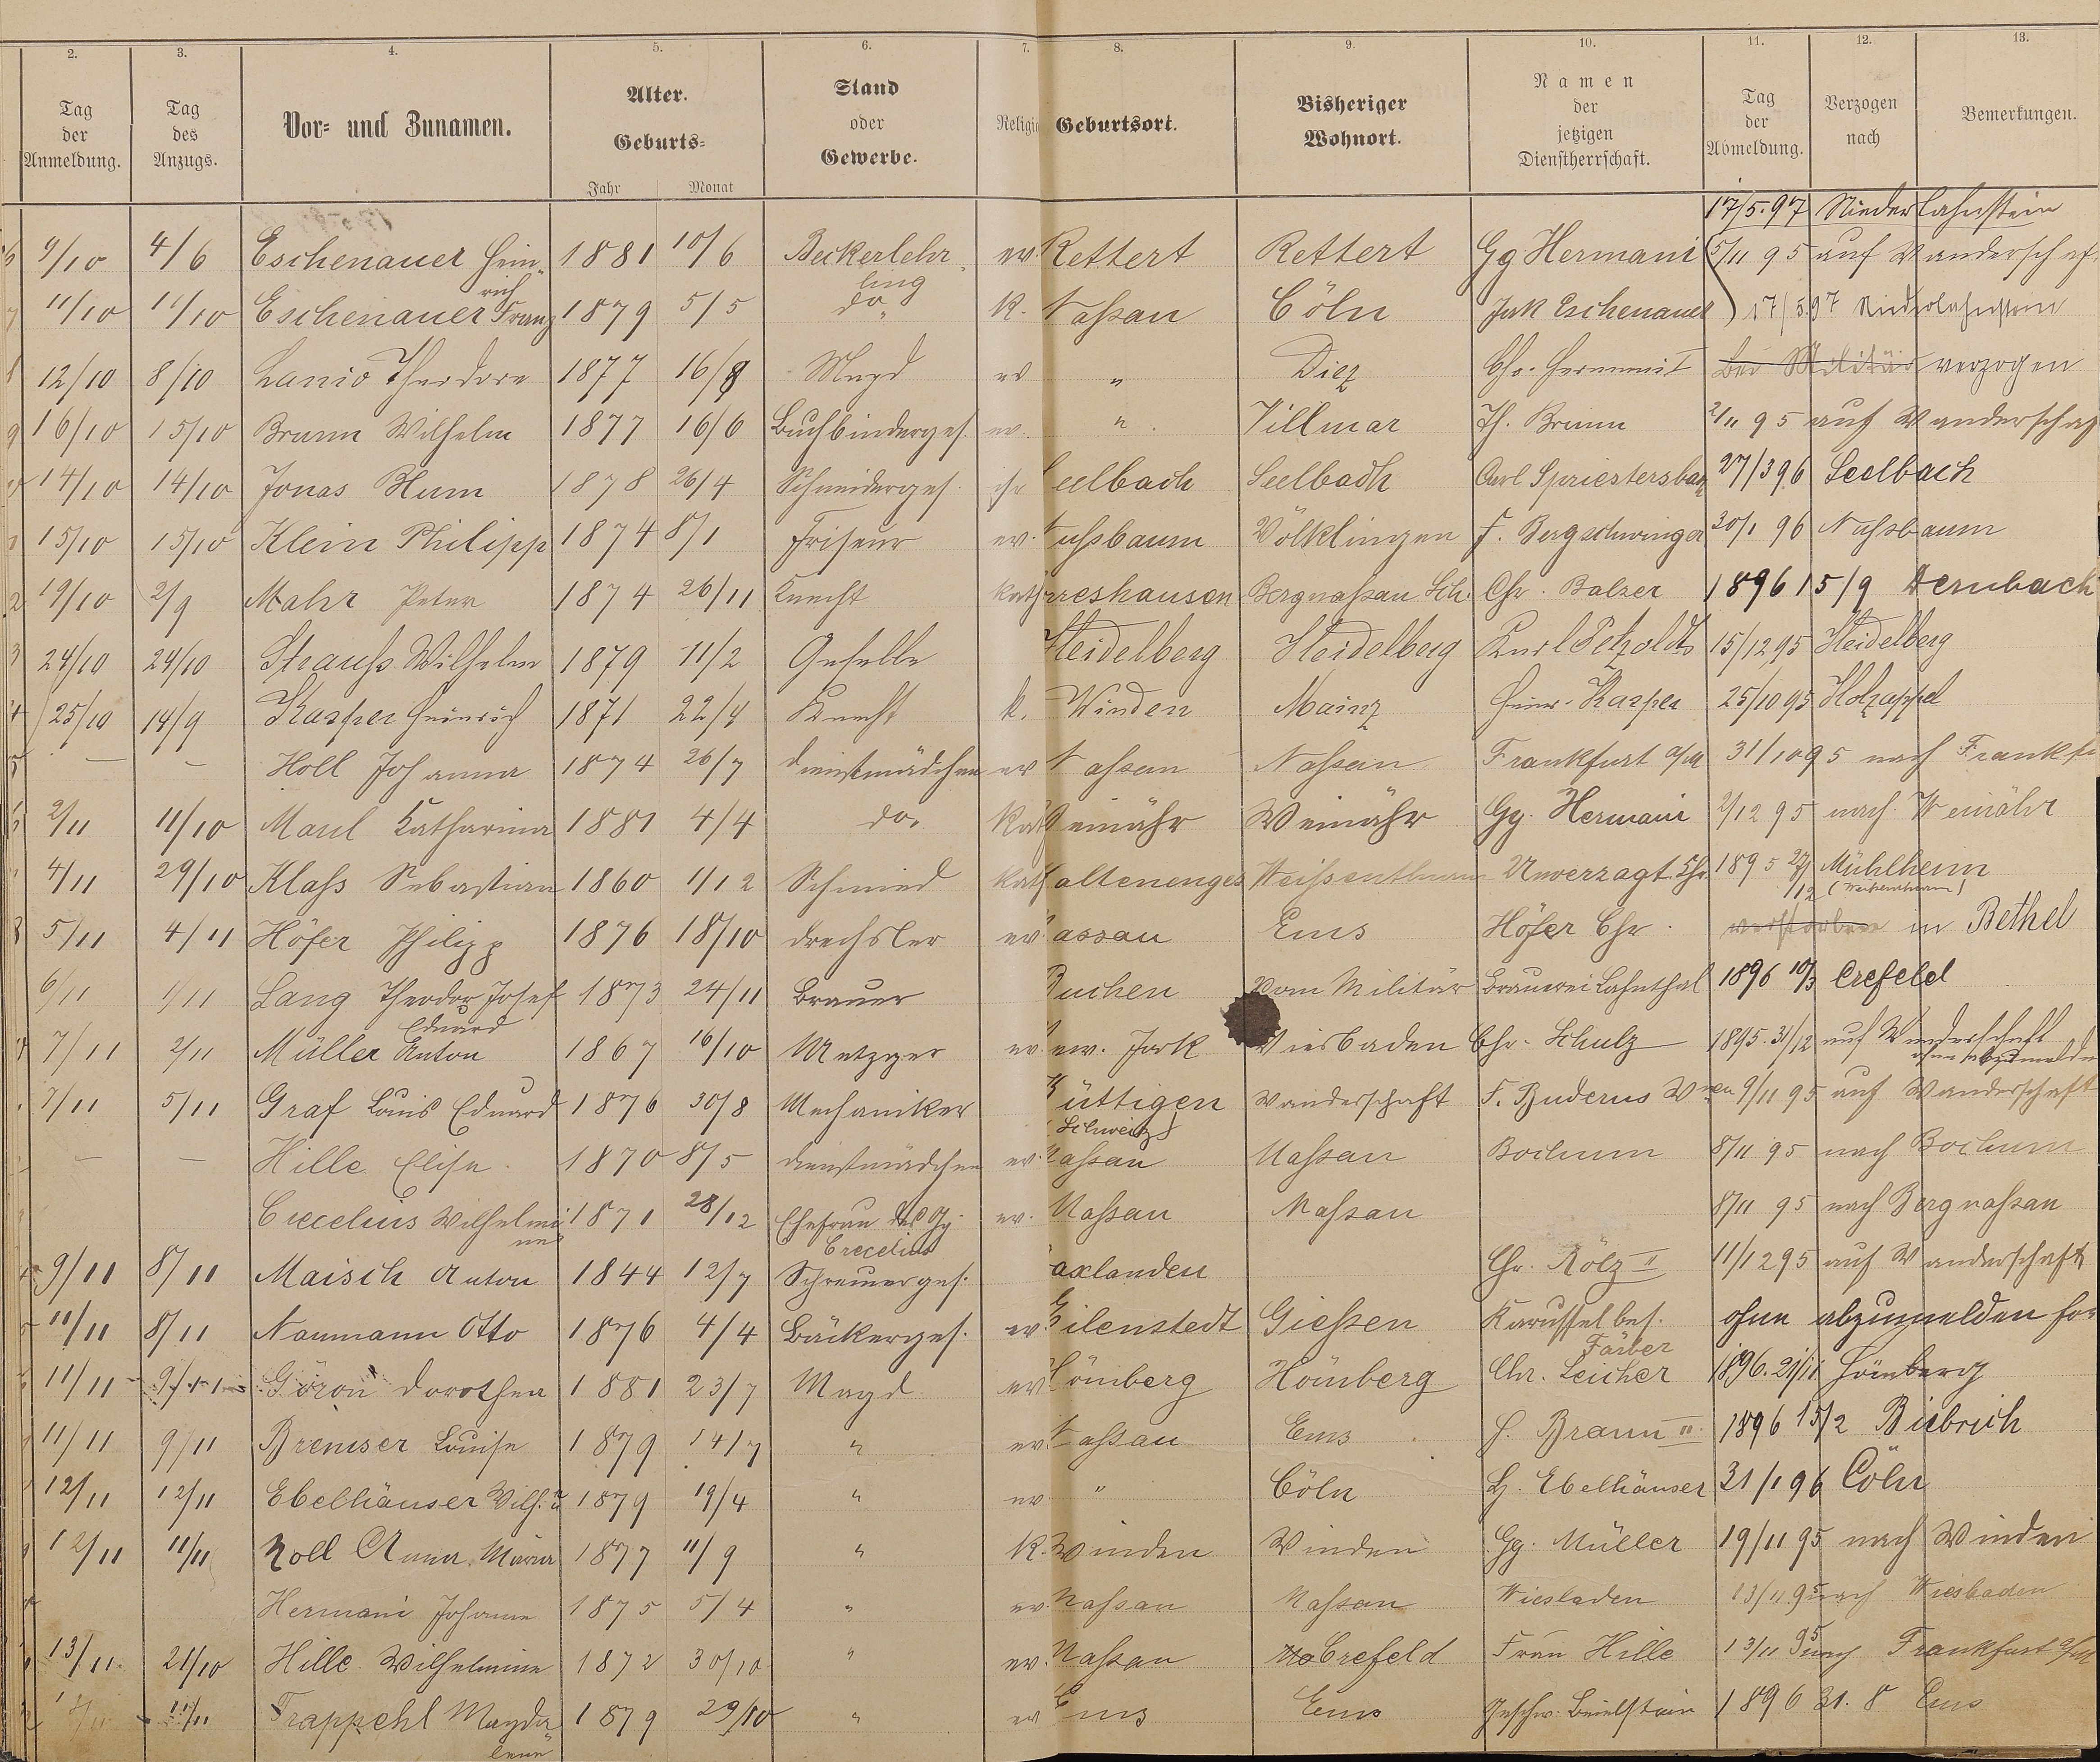 2. 3. 4. 5. 6. 7. 8. 9. 10. 11. 12. 13.
Tag der Anmeldung. Tag des Anzugs. Vor= und Zunamen. Alter. Geburts= Jahr Monat Stand oder Gewerbe. Religio Geburtsort. Bisheriger Wohnort. Namen der jetzigen Dienstherrschaft. Tag der Abmeldung. Verzogen nach Bemerkungen.
17/5.97 Niederlahnstein
9/10 4/6 Eschenauer Hein= 1881 10/6 Beckerlehr= ev. Rettert Rettert Gg Hermani 5/11 95 auf Wanderschaf
rich ling
11/10 11/10 Eschenauer Franz 1879 5/5 do. k. Naßau Cöln Jak Eschenauer 17/5.97 Niederlahnstein
12/10 8/10 Lanio Theodore 1877 16/8 Magd ev " Diez Chr. Hermani I verzogen
16/10 15/10 Brunn Wilhelm 1877 16/6 Buchbinderges. ev. " Villmar Th. Brunn 2/11 95 auf Wanderschaf
14/10 14/10 Jonas Blum 1878 26/4 Schneiderges. isr eelbach Seelbach Carl Spriestersbach 27/3 96 Seelbach
15/10 15/10 Klein Philipp 1874 8/1 Friseur ev. Nußbaum Völklingen F. Bergschwinger 30/1 96 Nußbaum
19/10 2/9 Mahr Peter 1874 26/11 Knecht kath rreshausen Bergnaßau Sch. Chr. Balzer 1896 15/9 Dernbach
24/10 24/10 Strauß Wilhelm 1879 11/2 Geselle Heidelberg Heidelberg Karl Petzoldt 15/12 95 Heidelberg
25/10 14/9 Kasper Heinrich 1871 22/4 Knecht k. Winden Mainz Heinr. Kasper 25/10 95 Holzappel
— — Holl Johanna 1874 26/7 Dienstmädchen ev Naßau Naßau Frankfurt a/M 31/10 95 nach Frankfu
2/11 11/10 Maul Katharina 1881 4/4 do. Kath Weinähr Weinähr Gg. Hermani 2/12 95 nach Weinähr
4/11 29/10 Klaß Sebastian 1860 1/12 Schmied kath altenenges Weißenthurm Unverzagt Chr. 1895 27/12 Mühlheim
5/11 4/11 Höfer Philipp 1876 18/10 Drechsler ev. Nassau Ems Höfer Chr. verstorben in Bethel
6/11 1/11 Lang Theodor Josef 1873 24/11 Brauer Buchen Vom Militär Brauerei Lahnthal 1896 10/3 Crefeld
Eduard
7/11 2/11 Müller Anton 1867 16/10 Metzger ev. New. Jork Wiesbaden Chr. Schulz 1895. 31/12 auf Wanderschaft
ohne abzumelden
7/11 5/11 Graf Louis Eduard 1876 30/8 Mechaniker Küttigen Wanderschaft F. Buderus Wwe. 9/11 95 auf Wanderschaft
(Schweiz)
— — Hille Elise 1870 8/5 Dienstmädchen ev. Naßau Naßau Bochum 8/11 95 nach Bochum
Crecelius Wilhelmi 1871 28/12 Ehefrau des Gg. ev. Naßau Naßau 8/11 95 nach Bergnaßau
ne Crecelius
9/11 8/11 Maisch Anton 1844 12/7 Schreinerges. axlanden Chr. Rölz II 11/12 95 auf Wanderschaft
11/11 8/11 Naumann Otto 1876 4/4 Bäckerges. ev. Eilenstedt Gießen Karusselbes. ohne abzumelden for
Färber
11/11 9/11 Göron Dorothea 1881 23/7 Magd ev Hömberg Hömberg Chr. Leicher 1896. 21/11 Hömberg
11/11 9/11 Bremser Louise 1879 14/7 " ev. Naßau Ems H. Braun II. 1896 15/2 Biebrich
12/11 12/11 Ebelhäuser Wilh. 1879 19/4 " ev " Cöln H. Ebelhäuser 31/1 96 Cöln
12/11 11/11 Noll Anna Maria 1877 11/9 " k. Winden Winden Gg. Müller 19/11 95 nach Winden
Hermani Johanna 1875 5/4 " ev. Naßau Naßau Wiesbaden 13/11 95 nach Wiesbaden
13/11. 21/10 Hille Wilhelmine 1872 30/10 " ev. Naßau Crefeld Frau Hille 13/11 95 nach Frankfurt a/M
11/11 Trappehl Magda= 1879 29/10 " ev Ems Ems Geschw. Beielstein 1896 31. 8 Ems
lene